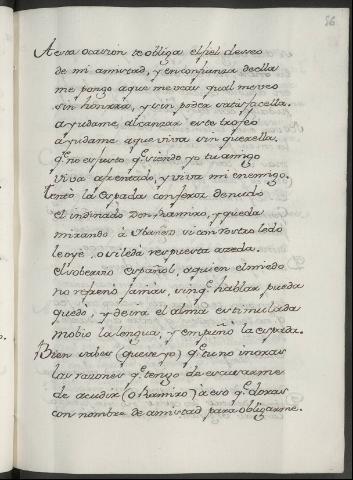 56
A esta ocasion te obliga el fiel deseo
de mi amistad, y en confianza de ella
me pongo a que me vais qual me veo
sin honrra, y sin poder satisfacella.
ayudame alcanzar este trofeo
ayudame a que viva sin querella.
q.e no es justo q.e siendo yo tu amigo
viva afrentado, y viva mi enemigo.
Tentò la Espada con feroz denuedo
el indinado Don Ramiro, y queda
mirando à Ybañez si con rostro ledo
le oye, o si le dà respuesta azeda.
el soberuio español, a quien el miedo
no refrenò jamas, sin q.e hablar pueda
quedò, y de ira el alma estimulada
mobio la lengua, y empuñò la espada.
Bien sabes (que se yo) q.e tu no inoras
las razones q.e tengo de escusarme
de acudir (o Ramiro) à eso q.e doras
con nombre de amistad para obligarme.